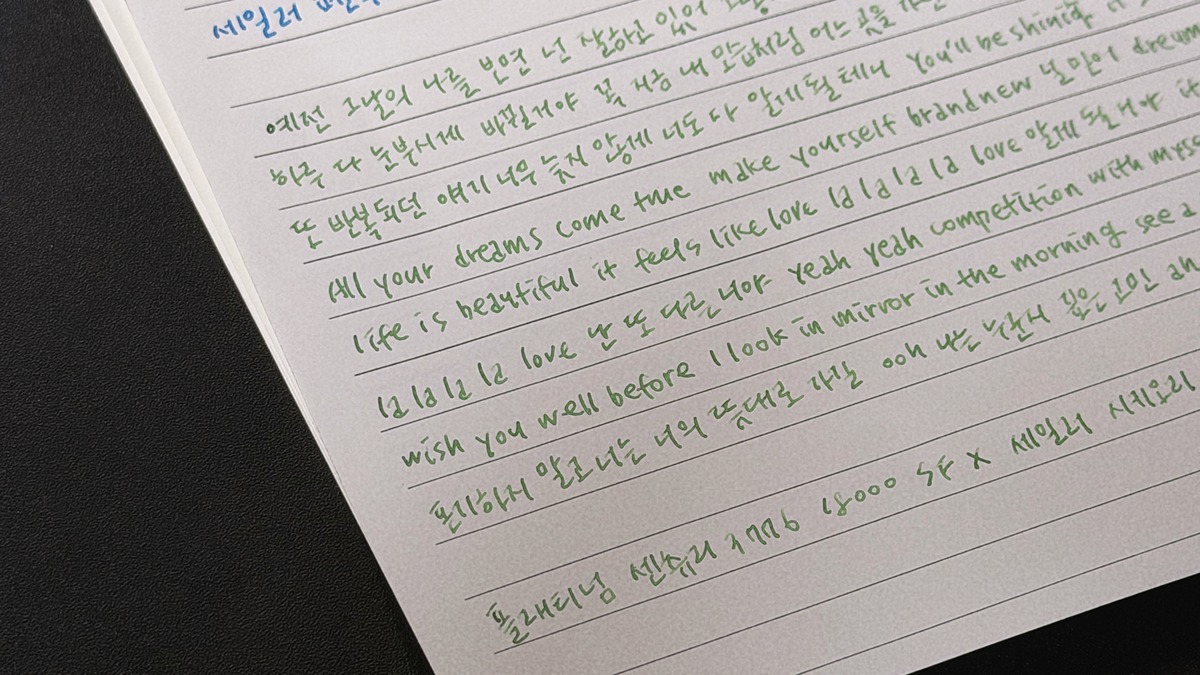 세일러
예전 그날의 나를 보면 넌 잘하고 있어
하루 다 눈부시게 바뀔거야 꼭 지금 내 모습처럼 어느 곳을
또 반복되던 얘기 너무 늦지 않게 너도 다 알게될테니 You'll be shining
All your dreams come true make yourself brandnew 널 많이 dream
life is beautiful it feels like love la la la la love 알게 될거야
la la la la love 난 또 다른 너야 yeah yeah competition with myse
wish you well before I look in mirror in the morning see a
포기하지 말고 너는 너의 뜻대로 가질 ooh 나는 누군지 깊은 고민
플래티넘 센츄리 3776 18000 SF X 세일러 시키오리